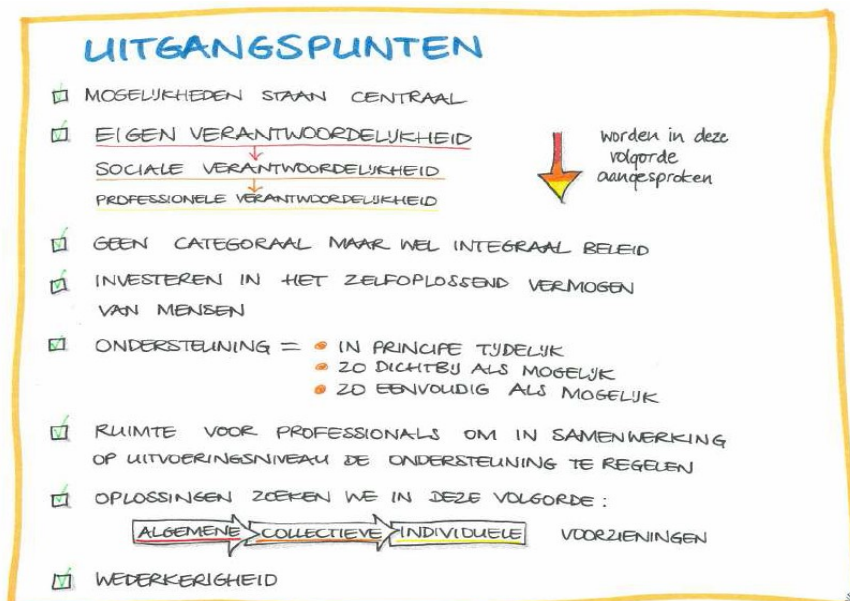 UITGANGSPUNTEN
MOGELIJKHEDEN STAAN CENTRAAL
EIGEN VERANTWOORDELIJKHEID
SOCIALE VERANTWOORDELIJKHEID
PROFESSIONELE VERANTWOORDELIJKHEID
worden in deze
volgorde
aangesproken
GEEN CATEGORAAL MAAR WEL INTEGRAAL BELEID
INVESTEREN IN HET ZELFOPLOSSEND VERMOGEN
VAN MENSEN
ONDERSTEUNING = • IN PRINCIPE TIJDELIJK
• ZO DICHTBIJ ALS MOGELIJK
• ZO EENVOUDIG ALS MOGELIJK
RUIMTE VOOR PROFESSIONALS OM IN SAMENWERKING
OP UITVOERINGSNIVEAU DE ONDERSTEUNING TE REGELEN
OPLOSSINGEN ZOEKEN WE IN DEZE VOLGORDE:
ALGEMENE COLLECTIEVE INDIVIDUELE VOORZIENINGEN
WEDERKERIGHEID